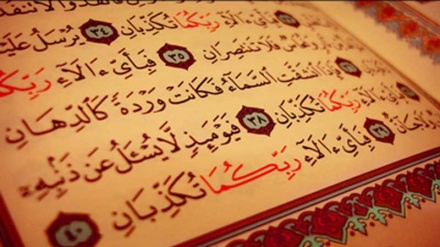 ءَالَآءِ رَبِّكُمَا تُكَذِّبَانِ ٣٤ يُرْسَلُ عَلَيْ
وَنُحَاسٌ فَلَا تَنتَصِرَانِ ٣٥ فَبِأَيِّ ءَالَآءِ رَبِّكُ
فَإِذَا ٱنشَقَّتِ ٱلسَّمَآءُ فَكَانَتْ وَرْدَةً كَٱلدِّهَانِ
ءَالَآءِ رَبِّكُمَا تُكَذِّبَانِ ٣٨ فَيَوْمَئِذٍ لَّا يُسْـَٔلُ عَن ذَنۢبِهِۦٓ
جَآنٌّ ٣٩ فَبِأَيِّ ءَالَآءِ رَبِّكُمَا تُكَذِّبَانِ ٤٠